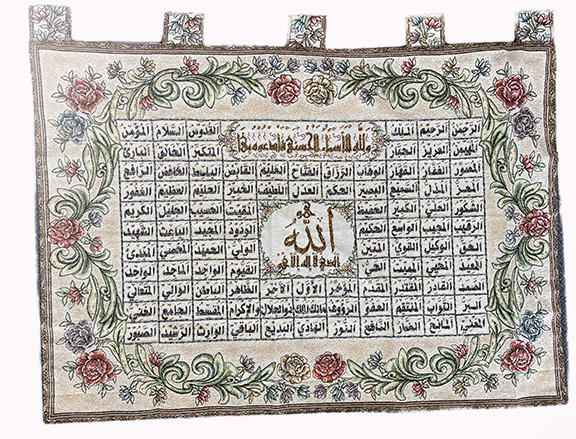 الرحمن الرحيم الملك القدوس السلام المؤمن
ولله الأسماء الحسنى فادعوه بها
المهيمن العزيز الجبار المتكبر الخالق البارئ
المصور الغفار القهار الوهاب الرزاق الفتاح العليم القابض الباسط الخافض الرافع
المعز المذل السميع البصير الحكم العدل اللطيف الخبير الحليم العظيم الغفور
الشكور العلي الكبير الحفيظ المقيت الحسيب الجليل الكريم
هو
الرقيب المجيب الواسع الحكيم الودود المجيد الباعث الشهيد
الله
الحق الوكيل القوي المتين الولي الحميد المحصي المبدئ
الذي لا إله إلا هو
المعيد المحيي المميت الحي القيوم الواجد الماجد الواحد
الصمد القادر المقتدر المقدم المؤخر الأول الآخر الظاهر الباطن الوالي المتعالي
البر التواب المنتقم العفو الرؤوف مالك الملك ذو الجلال والإكرام المقسط الجامع الغني
المغني المانع الضار النافع النور الهادي البديع الباقي الوارث الرشيد الصبور